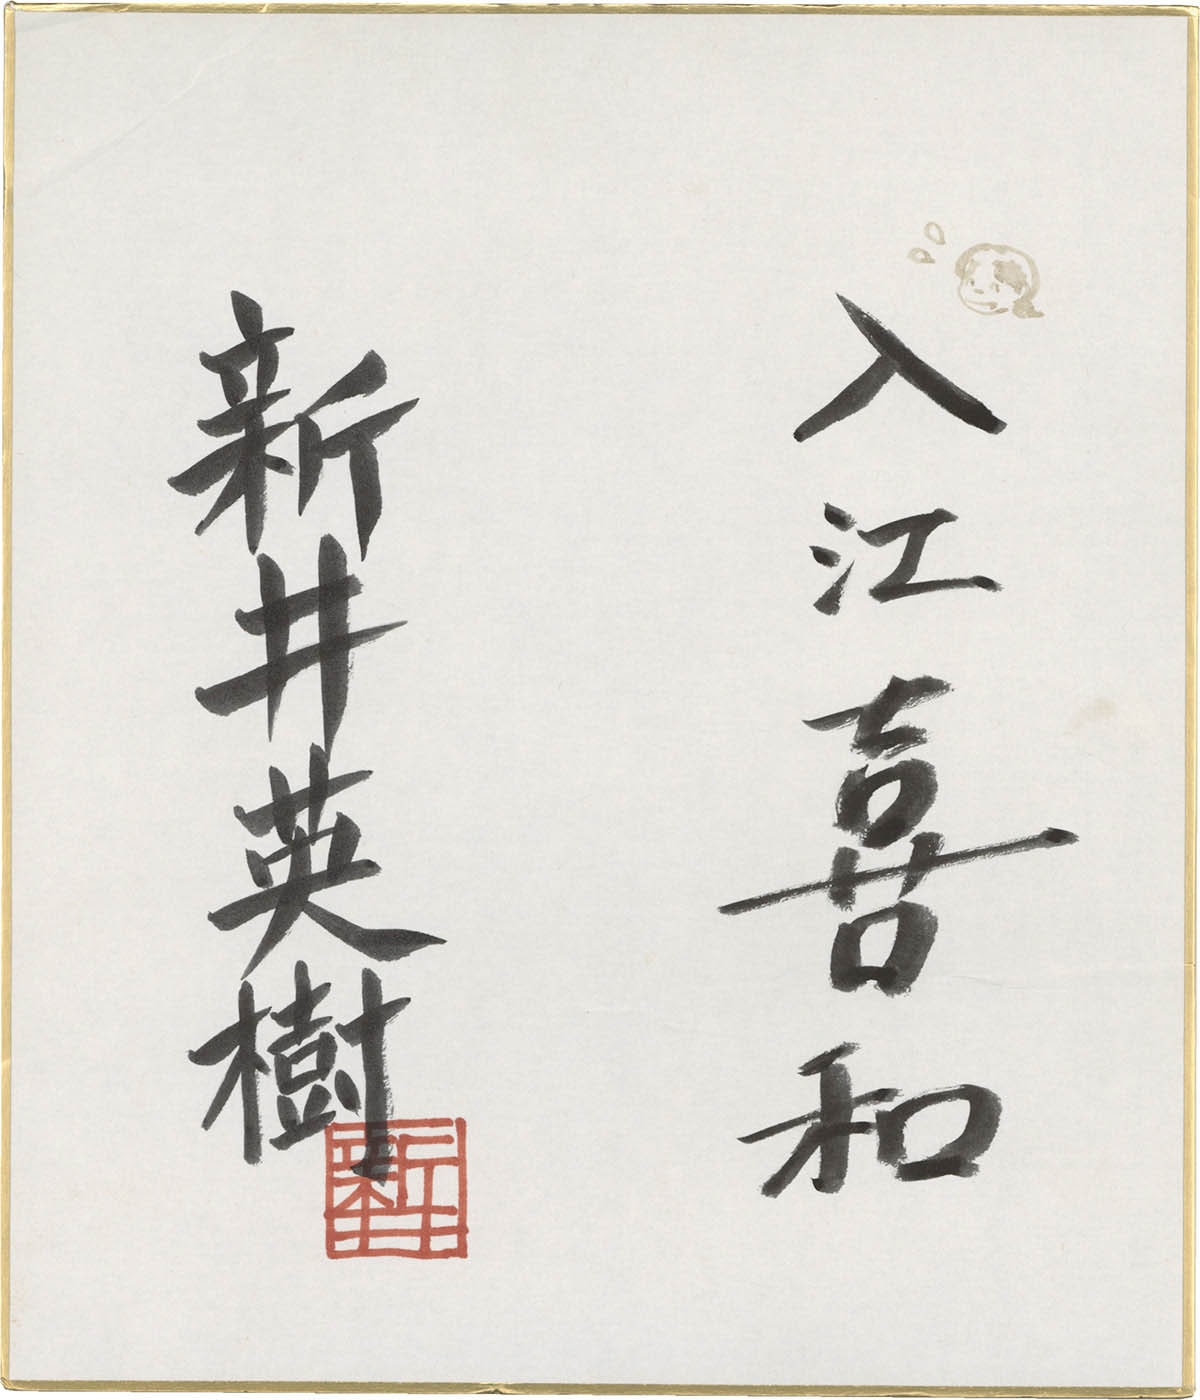 入江喜和
新井英樹
新井